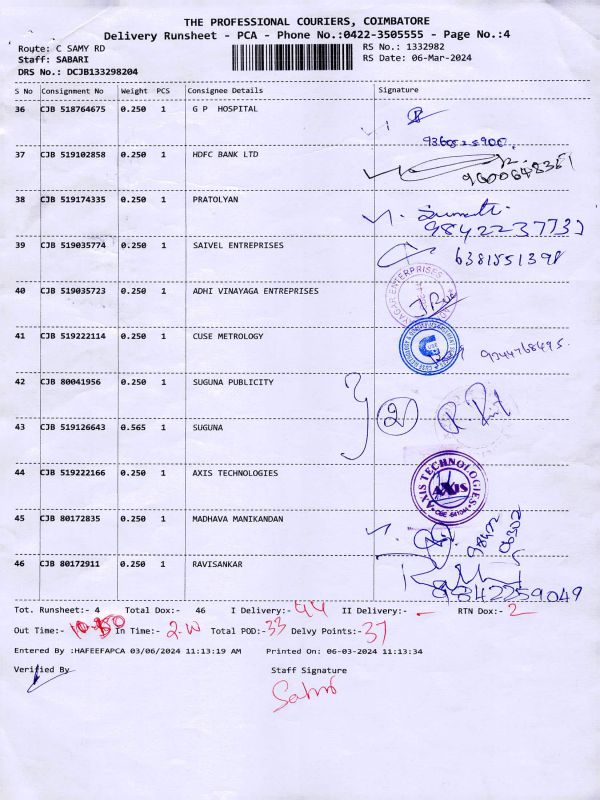 THE PROFESSIONAL COURIERS, COIMBATORE
Delivery Runsheet - PCA - Phone No.:0422-3505555 - Page No.:4
Route: C SAMY RD
RS No.: 1332982
Staff: SABARI
RS Date: 06-Mar-2024
DRS No.: DCJB133298204
S No Consignment No Weight PCS Consignee Details Signature
36 CJB 518764675 0.250 1 G P HOSPITAL
37 CJB 519102858 0.250 1 HDFC BANK LTD
9600648351
38 CJB 519174335 0.250 1 PRATOLYAN
9842237733
39 CJB 519035774 0.250 1 SAIVEL ENTREPRISES
6381551398
40 CJB 519035723 0.250 1 ADHI VINAYAGA ENTREPRISES
41 CJB 519222114 0.250 1 CUSE METROLOGY
9344768495
42 CJB 80041956 0.250 1 SUGUNA PUBLICITY
2
43 CJB 519126643 0.565 1 SUGUNA
44 CJB 519222166 0.250 1 AXIS TECHNOLOGIES
AXIS TECHNOLOGIES
AXIS
45 CJB 80172835 0.250 1 MADHAVA MANIKANDAN
46 CJB 80172911 0.250 1 RAVISANKAR
9842259049
Tot. Runsheet:- 4 Total Dox:- 46 I Delivery:- 44 II Delivery:- - RTN Dox:- 2
Out Time:- In Time:- Total POD:- 33 Delvy Points:- 37
Entered By :HAFEEFAPCA 03/06/2024 11:13:19 AM Printed On: 06-03-2024 11:13:34
Verified By Staff Signature